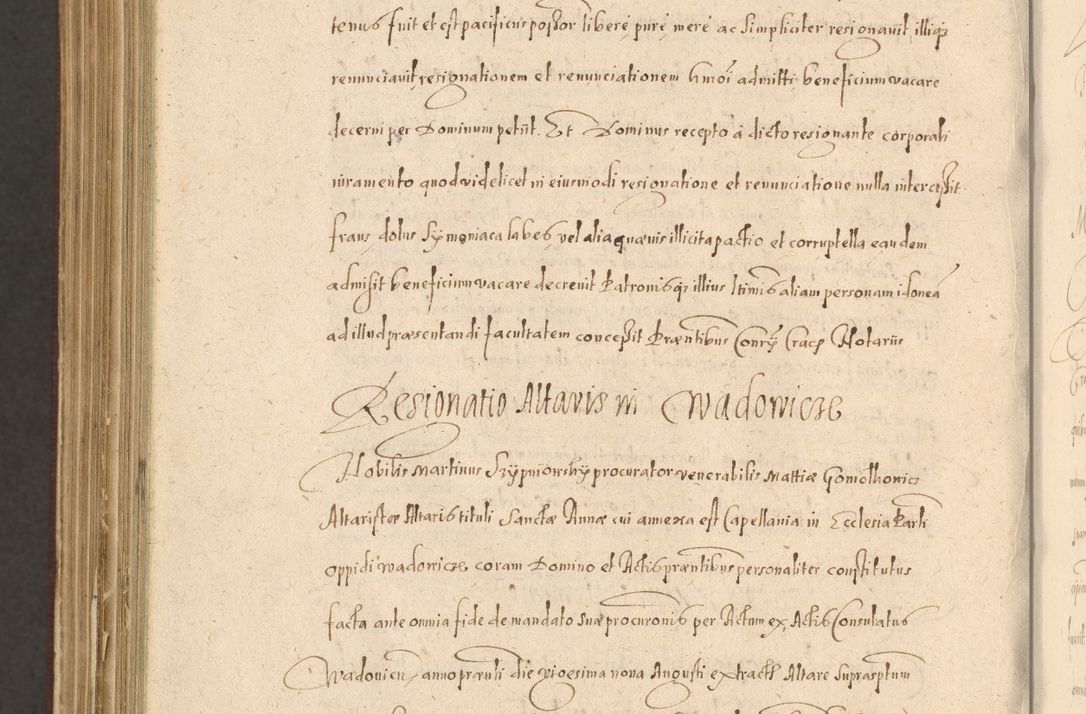 tenus fuit et est pacificus poss͠or libere pure mere ac simpliciter resignavit, illiq₃
renunciavit, resignationem et renunciationem hmōi admitti beneficium vacare
decerni per Dominum petiit. Et Dominus recepto á dicto resignante corporali
iuramento quod videlicet in eiusmodi resignatione et renunciatione nulla intercessit
fraus dolus Symoniaca labes vel alia quævis illicita pactio et corruptella eandem
admisit beneficium vacare decrevit Patronisq₃ illius ltimis aliam personam idoneā
ad illud præsentandi facultatem concessit Præntibus Conrÿ Crace Notariis
Resignatio Altaris in Wadowicze
Nobilis Martinus Szypniowsky procurator venerabilis Mattiæ Gomolkowicz
Altaristæ Altaris tituli Sanctæ Annæ cui annexa est Capellania in Ecclesia Parli
oppidi Wadowicze coram Domino et Actis præntibus personaliter constitutus
facta ante omnia fide de mandato suæ procuronis per Actum ex Actis Consulatus
Wadovien̄ anno prænti die vigesima nona Augusti extract Altare suprasptum